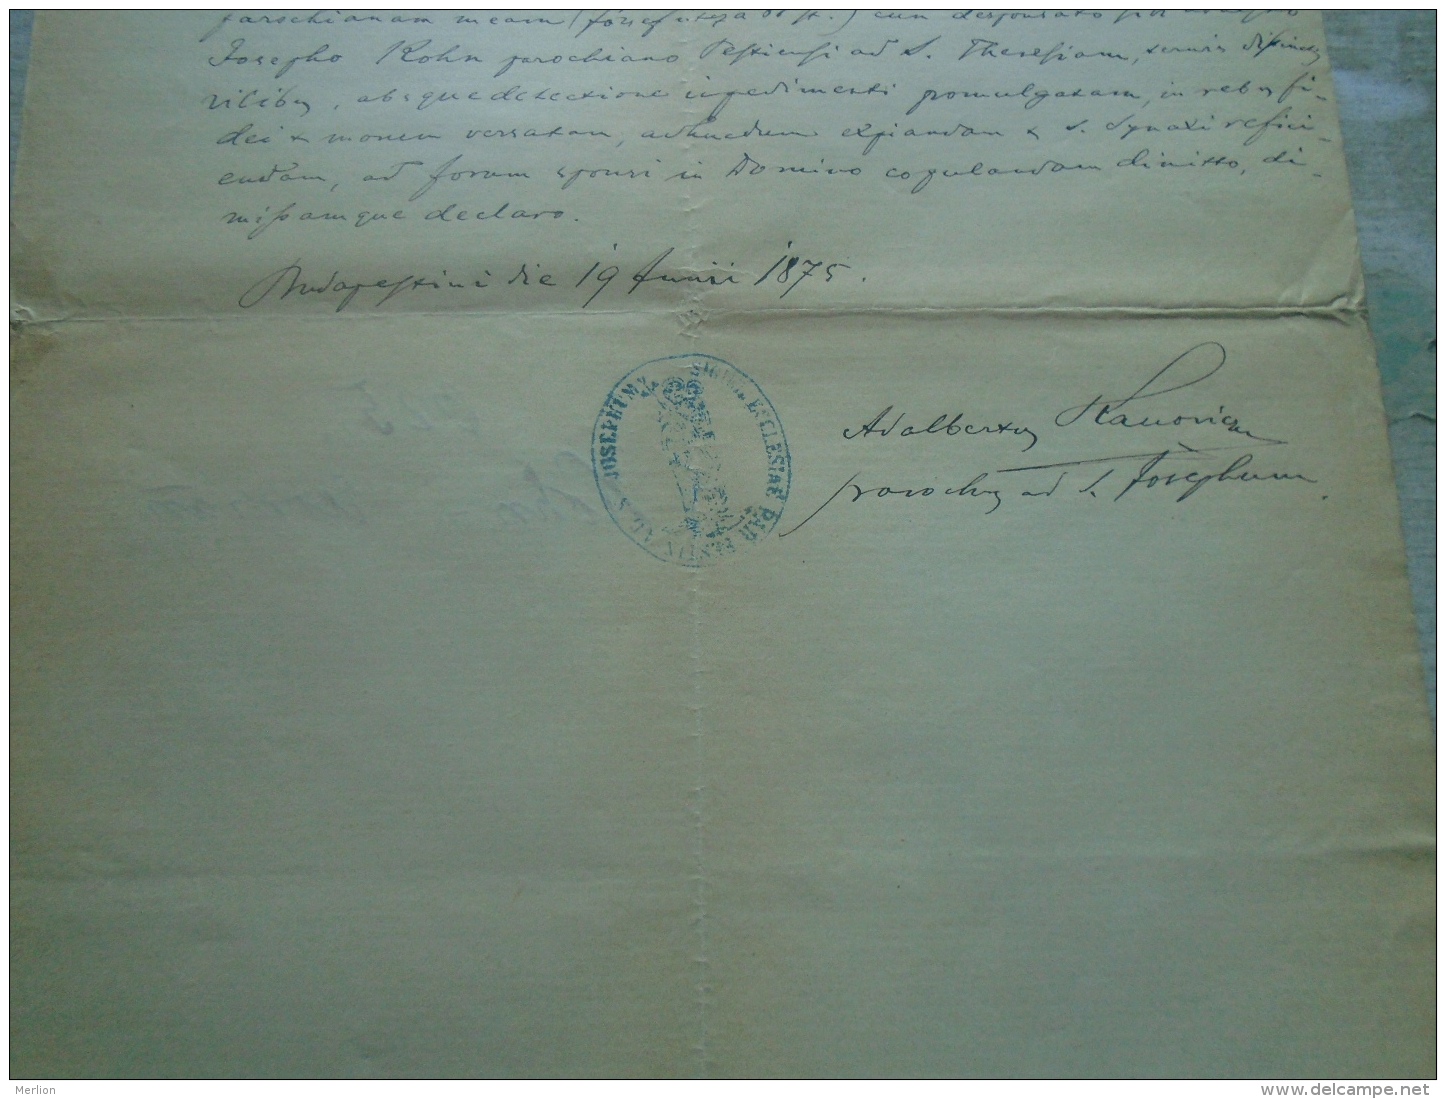 parochianam meam (József utcza st.) cum desponsato sibi
Josepho Kohn parochiano Pestiensi ad S. Theresiam, ternis distinctis
vilibus, absque detectione impedimenti promulgatam, in rebus fi-
dei & morum versatam, adhucdum expiandam & s. Synaxi refici-
endam, ad forum sponsi in Domino copulandam dimitto, di-
missamque declaro.
Budapestini die 19 Junii 1875.
SIGILL. ECCLESIAE PAR. PESTIN. AD S. JOSEPHUM
Adalbertus
parochus ad S. Josephum.
Merlion
www.delcampe.net